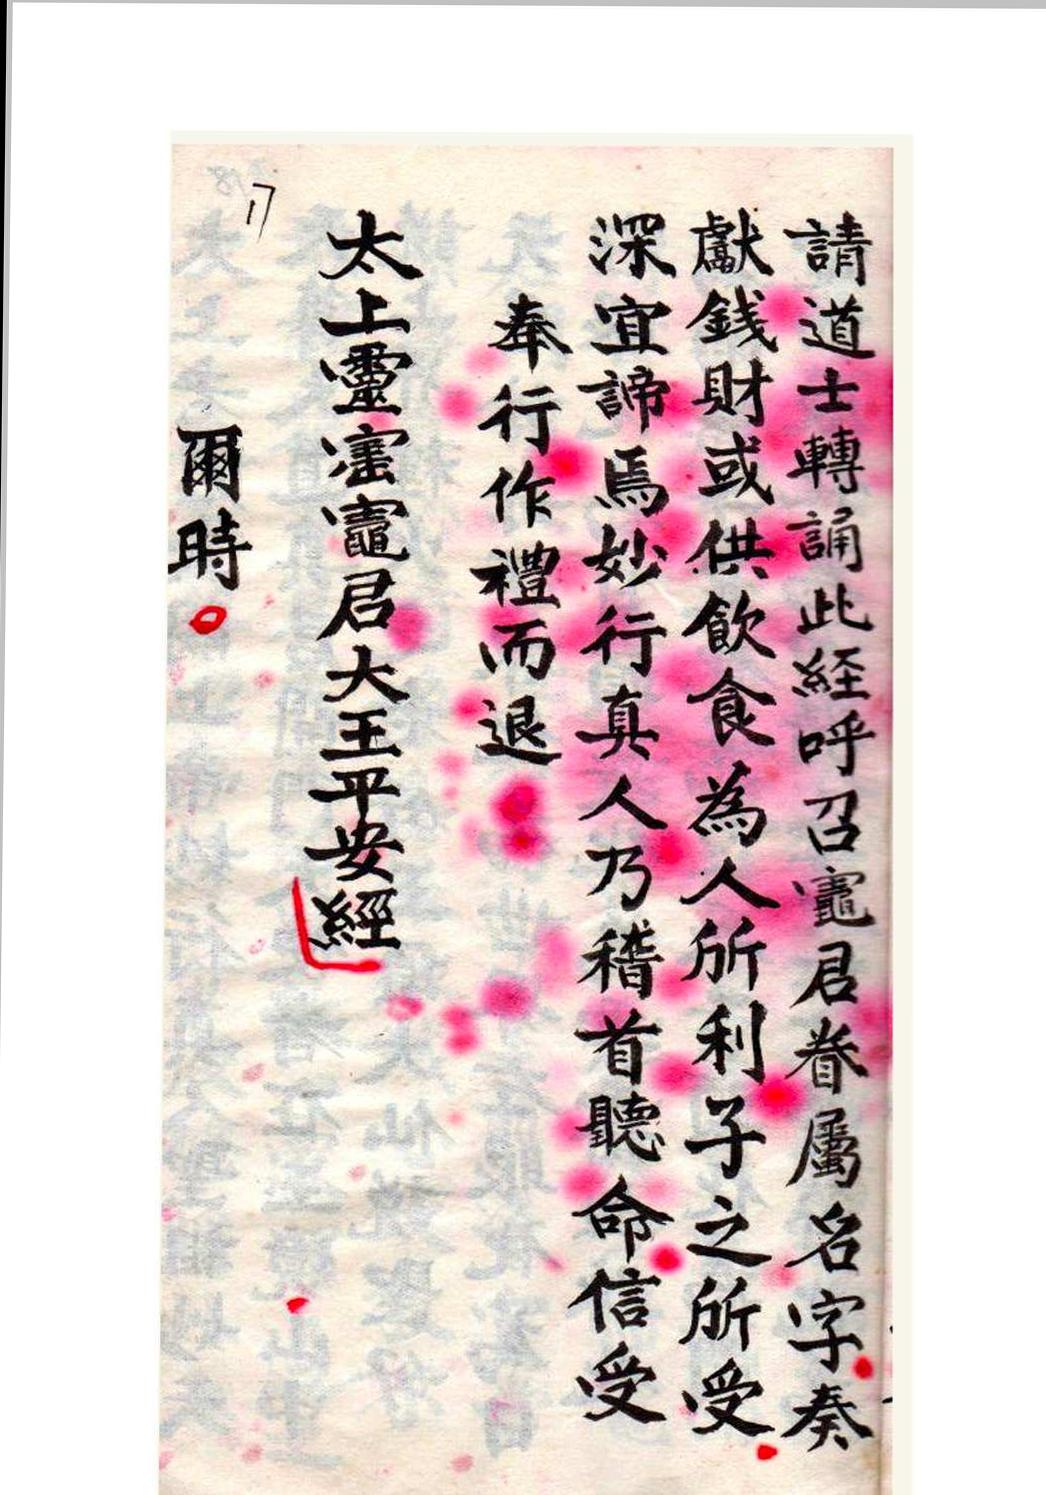 請道士轉誦此経呼召竈君眷屬名字奏
獻錢財或供飲食為人所利子之所受
深宜諦焉妙行真人乃稽首聽命信受
奉行作禮而退
太上靈寚竈君大王平安經
爾時